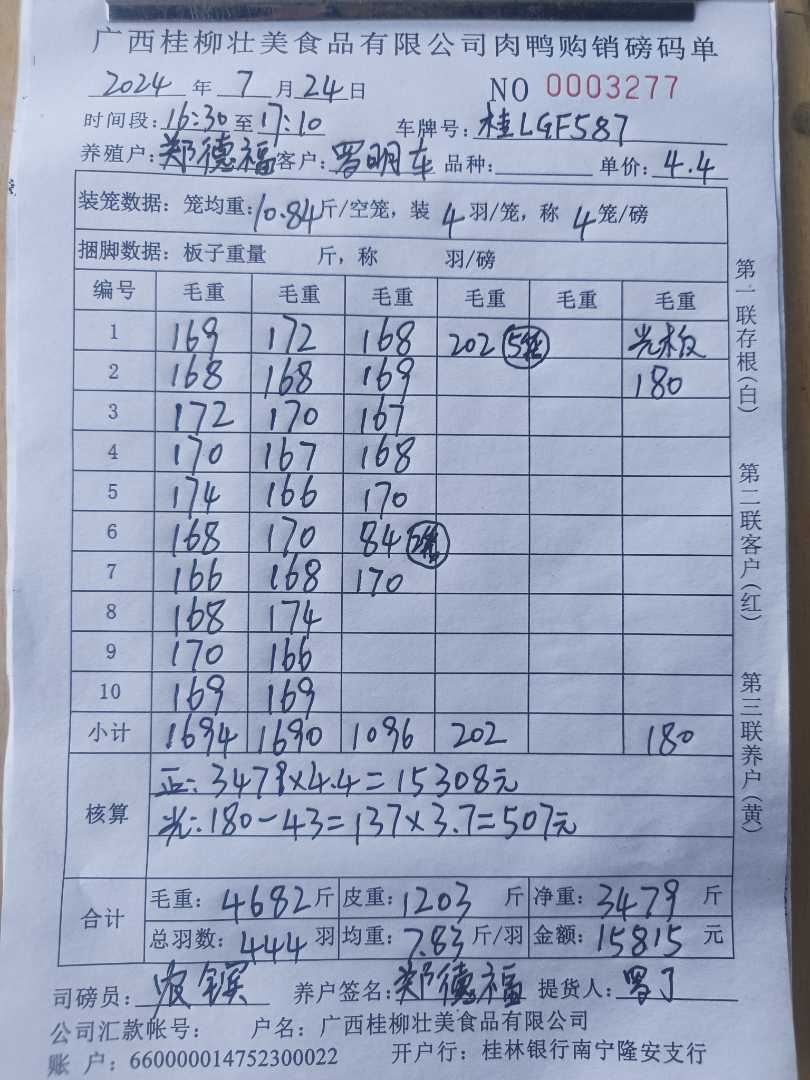 广西桂柳壮美食品有限公司肉鸭购销磅码单
2024 年 7 月 24 日 NO 0003277
时间段: 16:30 至 17:10 车牌号: 桂LGF587
养殖户: 郑德福 客户: 罗明车 品种: 单价: 4.4
装笼数据: 笼均重: 10.84 斤/空笼, 装 4 羽/笼, 称 4 笼/磅
捆脚数据: 板子重量 斤, 称 羽/磅
编号 毛重 毛重 毛重 毛重 毛重 毛重
1 169 172 168 202 5笼 光板
2 168 168 169 180
3 172 170 167
4 170 167 168
5 174 166 170
6 168 170 84 2笼
7 166 168 170
8 168 174
9 170 166
10 169 169
小计 1694 1690 1096 202 180
核算 正: 3479×4.4=15308元
光: 180-43=137×3.7=507元
合计 毛重: 4682 斤 皮重: 1203 斤 净重: 3479 斤
总羽数: 444 羽 均重: 7.83 斤/羽 金额: 15815 元
司磅员: 农 养户签名: 郑德福 提货人: 罗
公司汇款帐号: 户名: 广西桂柳壮美食品有限公司
账 户: 660000014752300022 开户行: 桂林银行南宁隆安支行
第一联存根(白)
第二联客户(红)
第三联养户(黄)